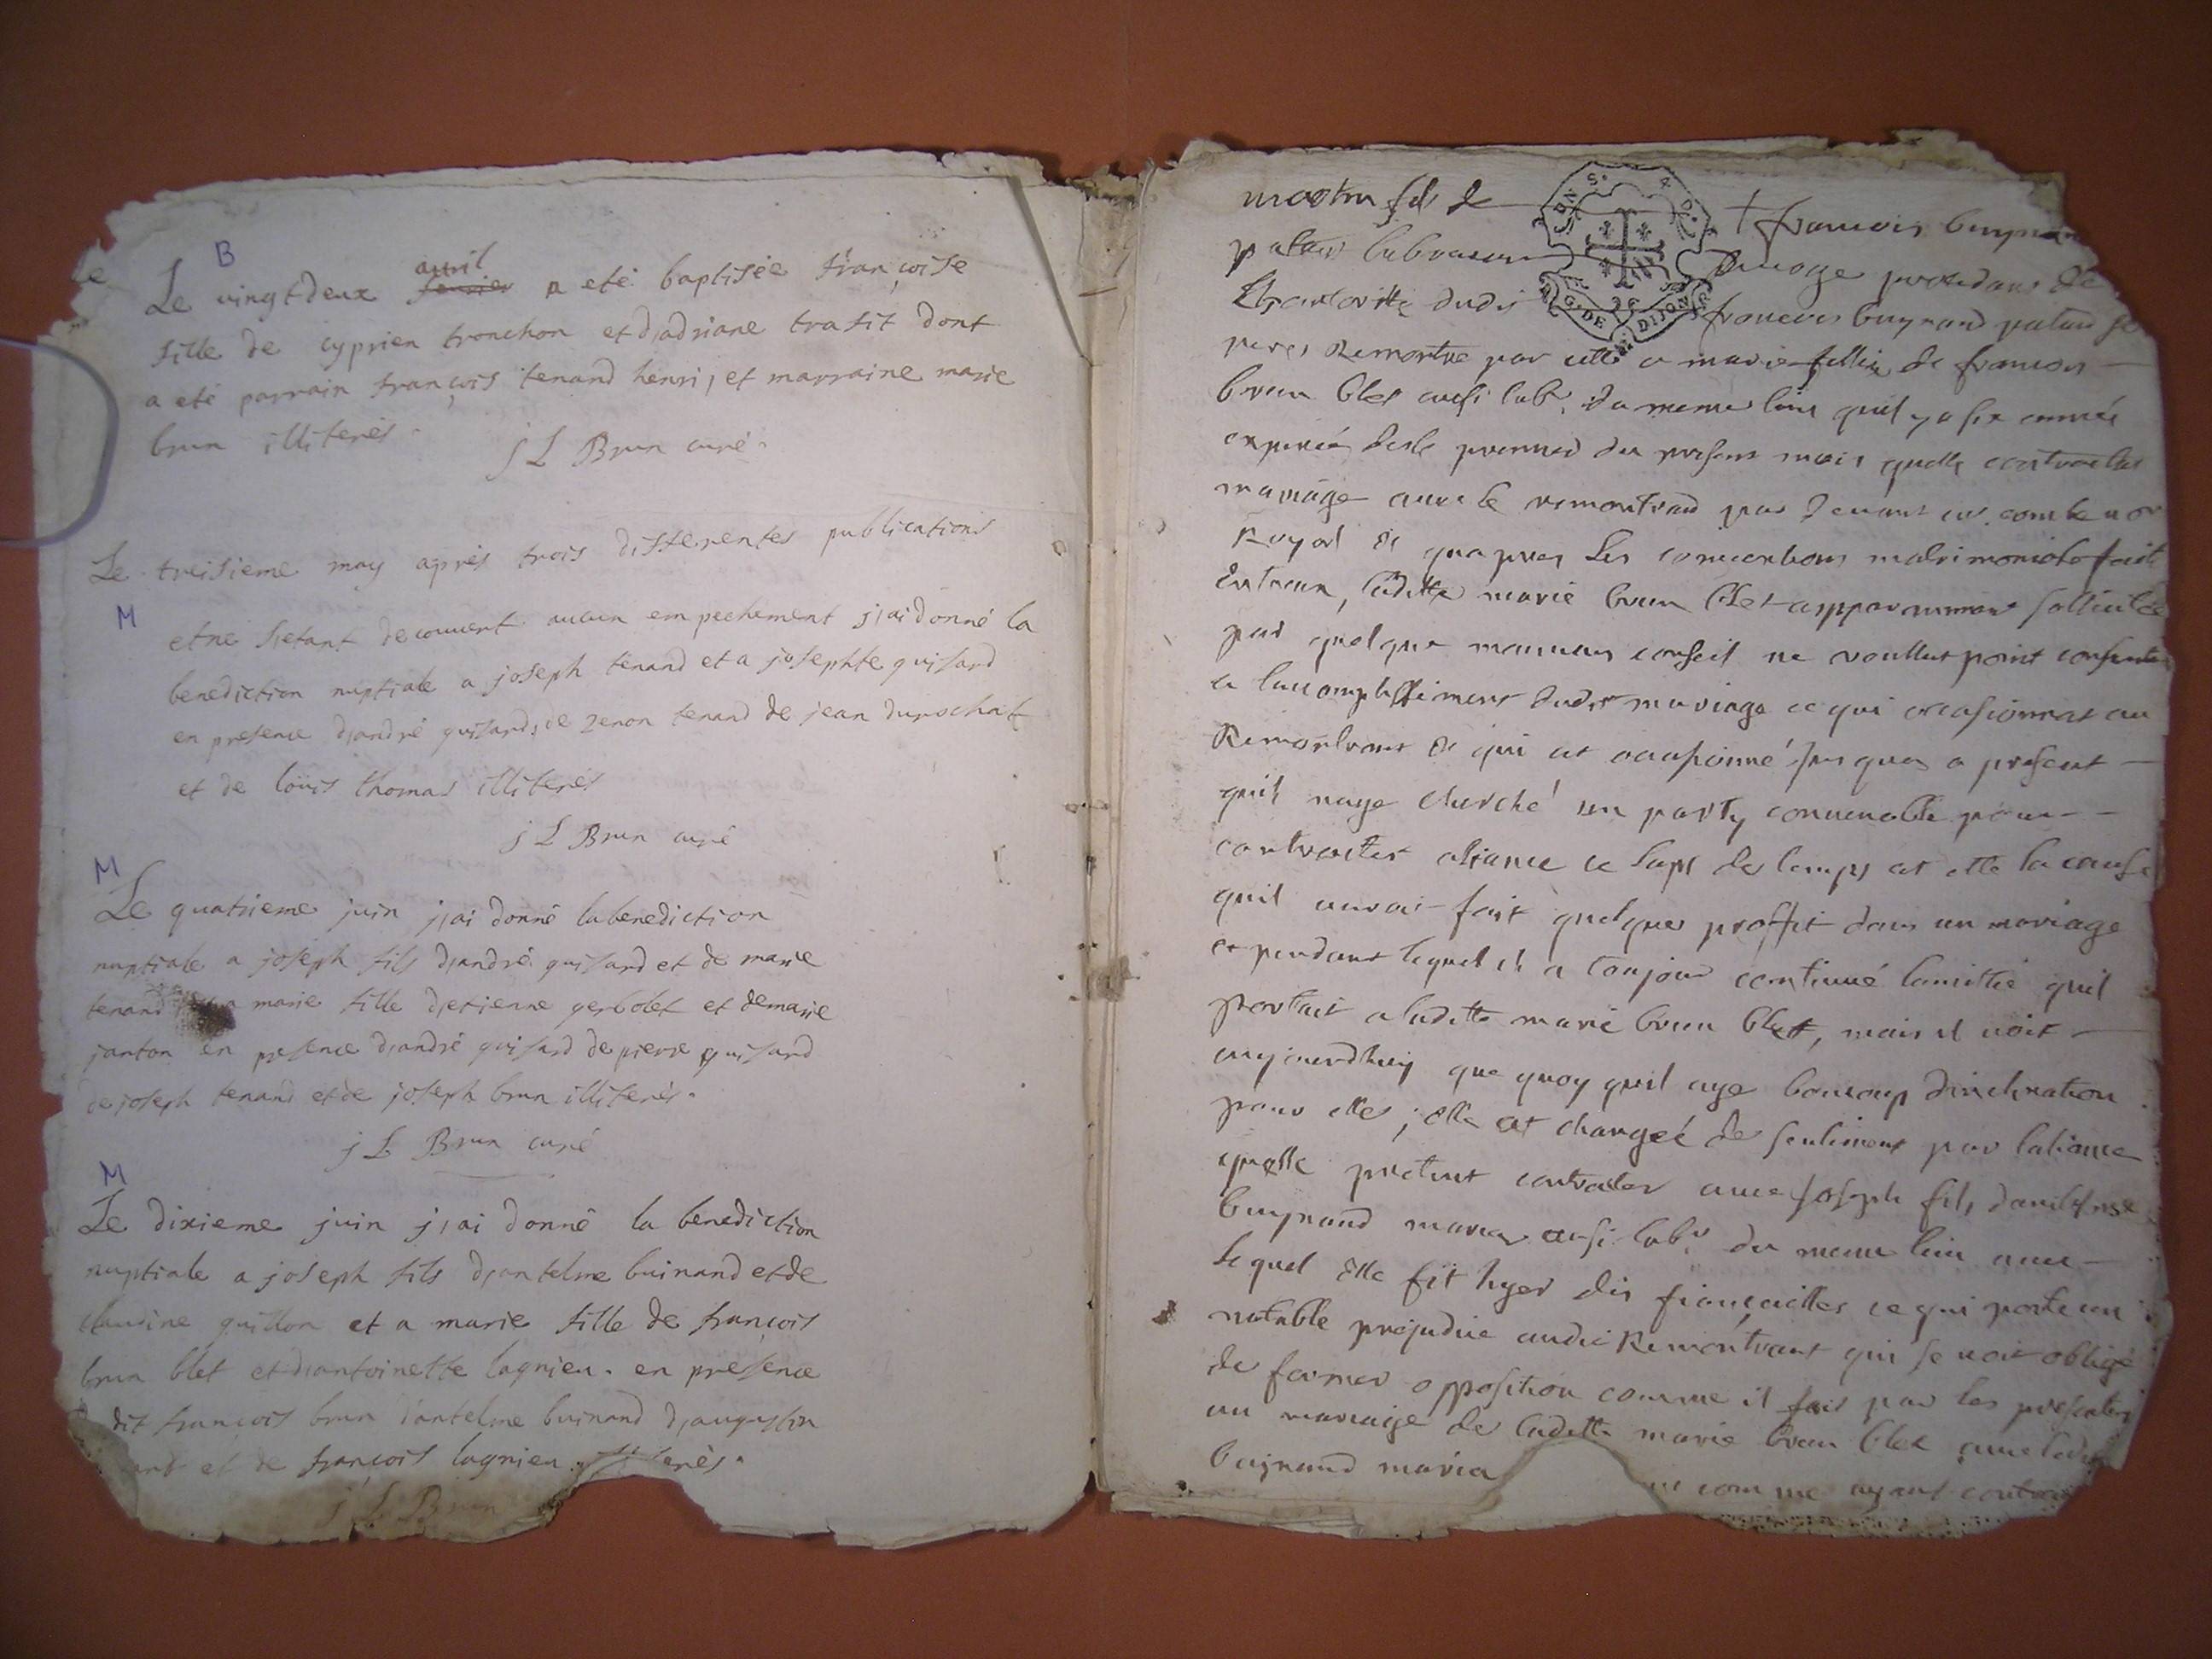 B
Le vingt deux fevrier avril a eté baptisée françoise
fille de cyprien tronchon et d'adriane trasit dont
a eté parrain françois tenand henri, et marraine marie
brun illiterés.
j L Brun curé.
Le treisieme may après trois differentes publications
M
et ne s'etant decouvert aucun empechement j'ai donné la
benediction nuptiale a joseph tenand et a josephte guisard
en presence d'andré guisard, de zenon tenand de jean durochat
et de loüis thomas illiterés
j L Brun curé
M
Le quatrieme juin j'ai donné la benediction
nuptiale a joseph fils d'andré guisard et de marie
tenand et a marie fille d'etienne gerbolet et de marie
janton en presence d'andré guisard de pierre guisard
de joseph tenand et de joseph brun illiterés.
j L Brun curé
M
Le dixieme juin j'ai donné la benediction
nuptiale a joseph fils d'antelme buinand et de
claudine guillon et a marie fille de françois
brun blet et d'antoinette lagnieu. en presence
dudit françois brun d'antelme buinand d'augustin
et de françois lagnieu
j L Brun
fils de † francois buynand
procedant de
dudit francois buynand
peres Remontre par elle a marie fillie de francois
brun blet ausi labr. du meme lieu quil y a six années
expirée desle premier du present mois quelle contractat
mariage avec le remontrant par devant
Royal & quapres les conventions matrimoniale faite
Entreux, laditte marie brun blet apparamment sollicitée
par quelque mauvais conseil ne voullut point consentir
a laccomplissiment dudit mariage ce qui occasionnat au
Remontrant & qui at occasionné jusques a present
quil naye cherché un party convenable pour
contracter aliance ce laps de temps at etté la cause
quil auroit fait quelques proffit dans un mariage
et pendant lequel il a toujour continué lamittié quil
portait a laditte marie brun blet, mais il voit
aujourdhuy que quoy quil aye baucoup dinclination
pour elle ; elle at changeé de sentiment par laliance
quelle pretent contracter avec joseph fils danthelme
buynand maria ausi labr du meme lieu avec
lequel elle fit hyer dis fiançailles ce qui porte un
notable prejudice audit Remontrant qui se voit obligé
de former opposition comme il fait par les presentes
au mariage de laditte marie brun blet avec ledit
buynand maria comme ayant